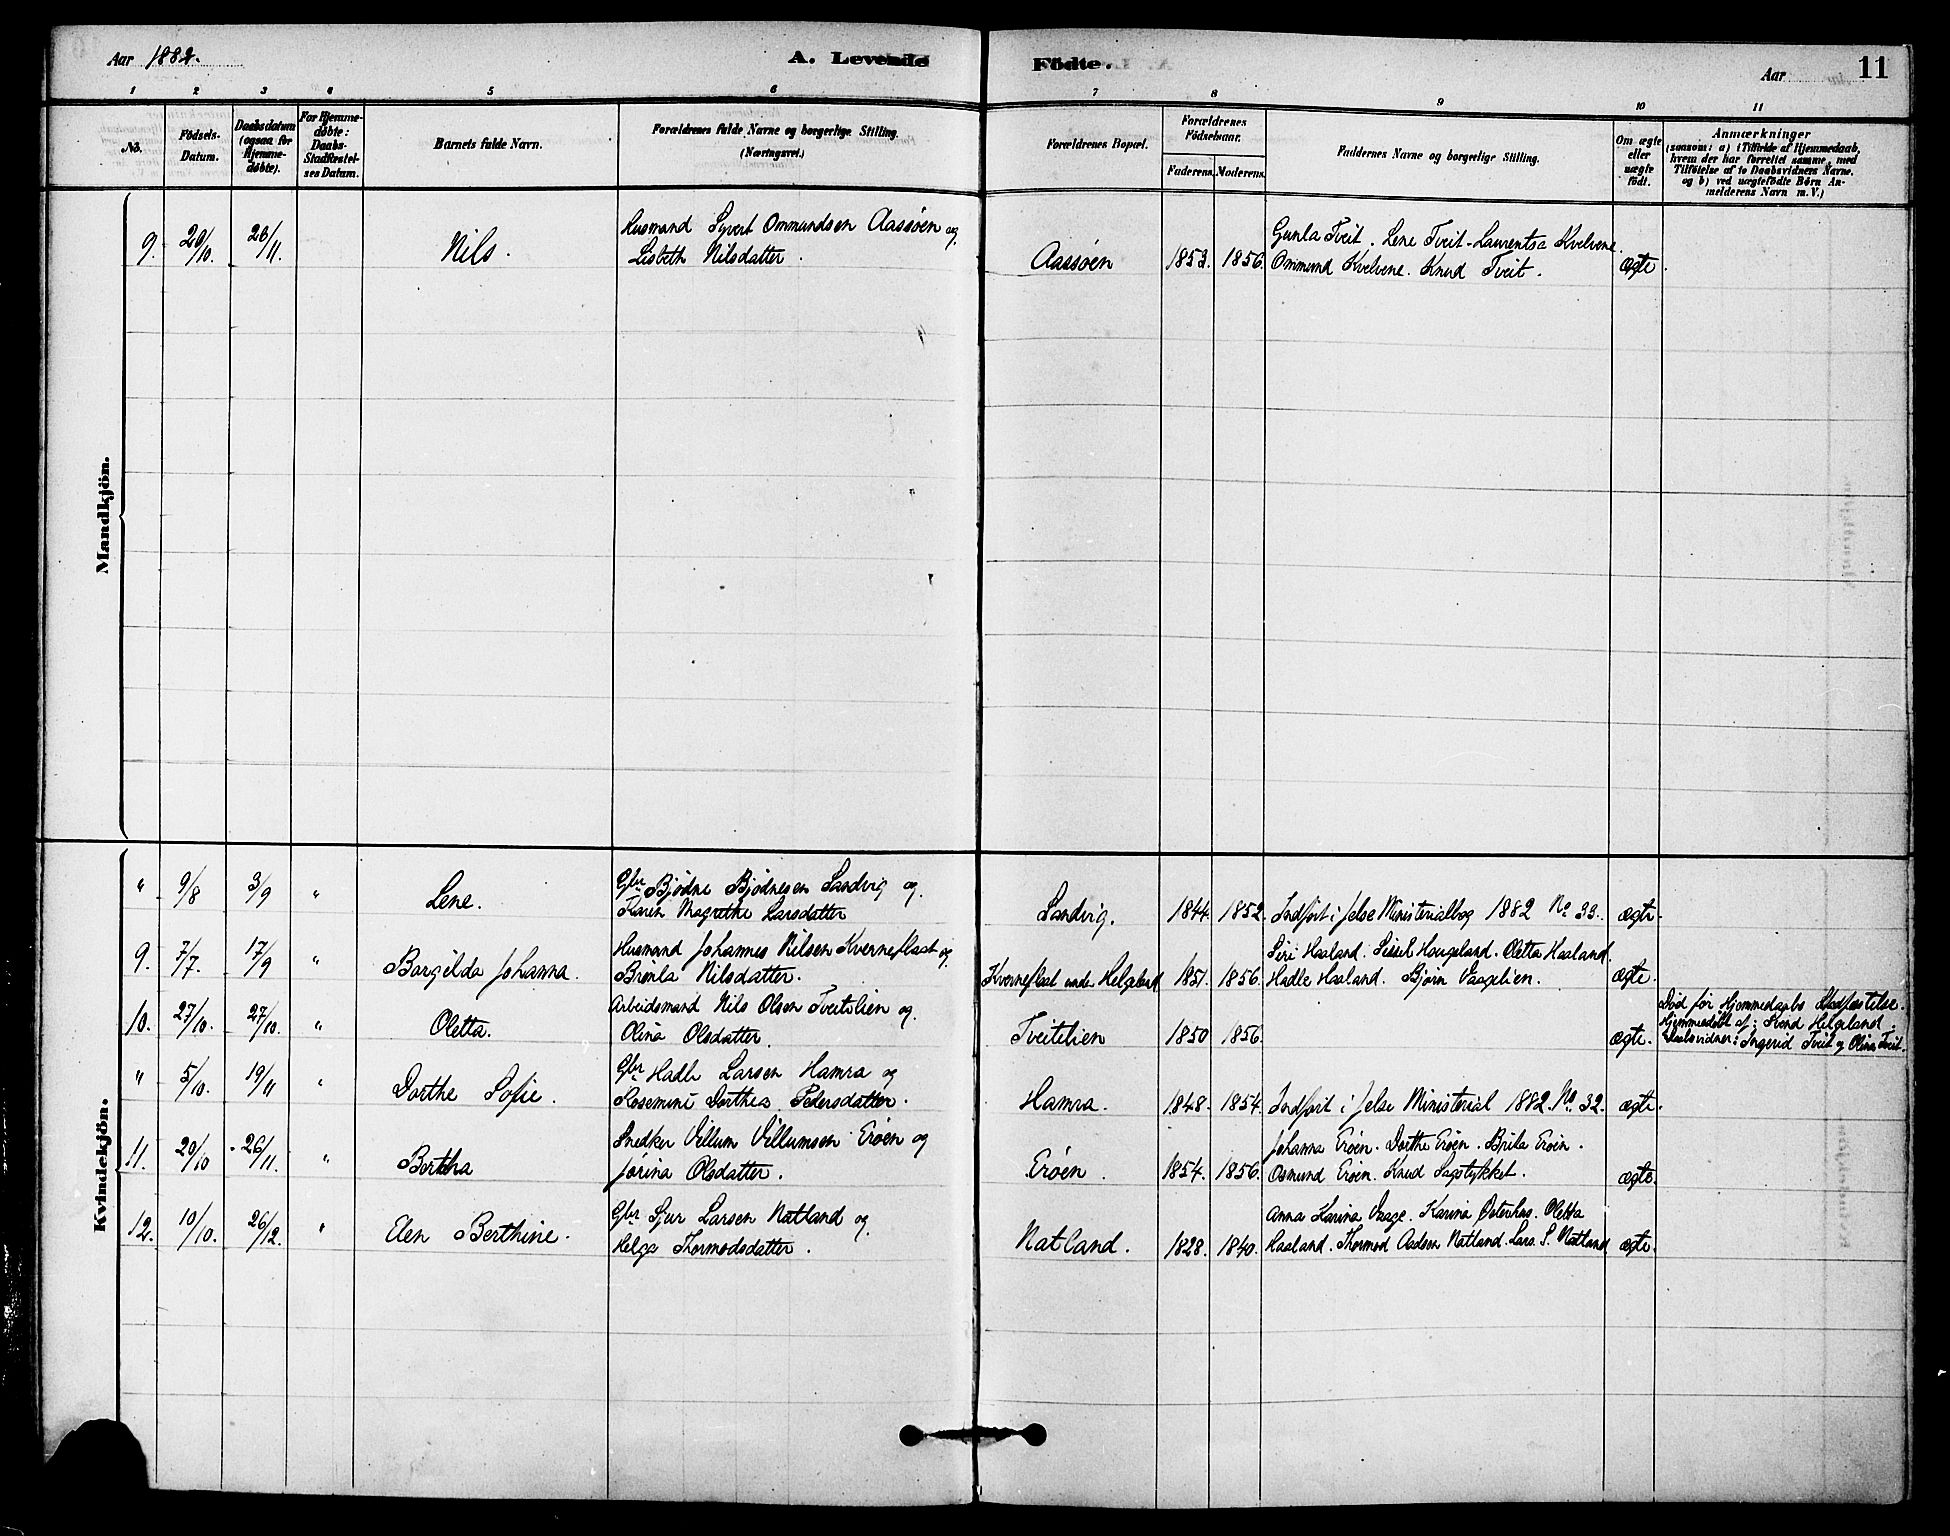 Aar 1882.
A. Levende Födte.
Aar
11
1 2 3 4 5 6 7 8 9 10 11
No.
Födsels-Datum.
Daabsdatum (ogsaa for Hjemme-døbte).
For Hjemme-døbte: Daabs-Stadfæstel-ses Datum.
Barnets fulde Navn.
Forældrenes fulde Navne og borgerlige Stilling.
(Næringsvei.)
Forældrenes Bopæl.
Forældrenes Födselsaar.
Faderens. Moderens.
Faddernes Navne og borgerlige Stilling.
Om ægte eller uægte födt.
Anmærkninger
(saasom: a) i Tilfælde af Hjemmedaab,
hvem der har forrettet samme, med
Tilföielse af to Daabsvidners Navne,
og b) ved uægtefödte Börn An-
melderens Navn m. V.)
Mandkjön.
9. 20/10. 26/11. Nils.
Husmand Syvert Ommundsen Aassøen og
Lisbeth Nilsdatter.
Aassøen 1853. 1856.
Gunla Tveit. Lene Tveit - Laurentsa Kvelvene.
Ommund Kvelvene. Knud Tveit. ægte.
Kvindekjön.
" 9/8 3/9 " Lene.
Gbr Bjødne Bjødnesen Sandvig og
Karen Magrethe Larsdatter
Sandvig. 1844. 1852. Indført i Jelse Ministerialbog 1882 No 33. ægte.
9. 7/7. 17/9 " Borgilda Johanna.
Husmand Johannes Nilsen Kverneflaat og
Brenla Nilsdatter.
Kverneflaat under Helgeland 1851. 1856.
Siri Haaland. Sissel Haugeland. Oletta Haaland.
Hadle Haaland. Bjørn Vaagelien. ægte.
10. 27/10. 27/10. " Oletta.
Arbeidsmand Nils Olsen Tveitelien og
Olina Olsdatter.
Tveitelien 1850 1856. ægte.
Død før Hjemmedaabs Stadfæstelse.
Hjemmedøbt af: Svend Helgeland.
Daabsvidner: Ingerid Tveit og Olina Tveit.
" 5/10. 19/11 " Dorthe Sofie.
Gbr Hadle Larsen Hamra og
Rosemine Dorthea Pedersdatter.
Hamra. 1848. 1854. Indført i Jelse Ministerial 1882. No. 32. ægte.
11. 20/10 26/11. " Bertha
Snedker Villum Villumsen Erøen og
Jorina Olsdatter.
Erøen. 1854. 1856.
Johanna Erøen. Dorthe Erøen. Brita Erøen.
Osmund Erøen. Knud Sagstykket. ægte.
12. 10/10. 26/12. " Elen Berthine.
Gbr Sjur Larsen Natland og
Helga Thormodsdatter.
Natland. 1828. 1840.
Anna Karina Vaage. Karina Østerhus. Oletta
Haaland. Thormod Aadsen Natland. Lars S. Natland ægte.